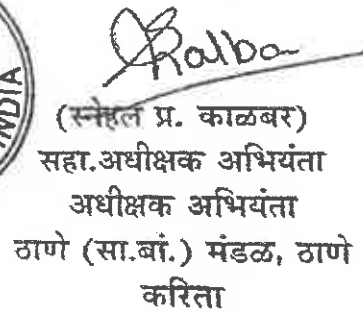 INDIA
(स्नेहल प्र. काळबर)
सहा.अधीक्षक अभियंता
अधीक्षक अभियंता
ठाणे (सा.बां.) मंडळ, ठाणे
करिता